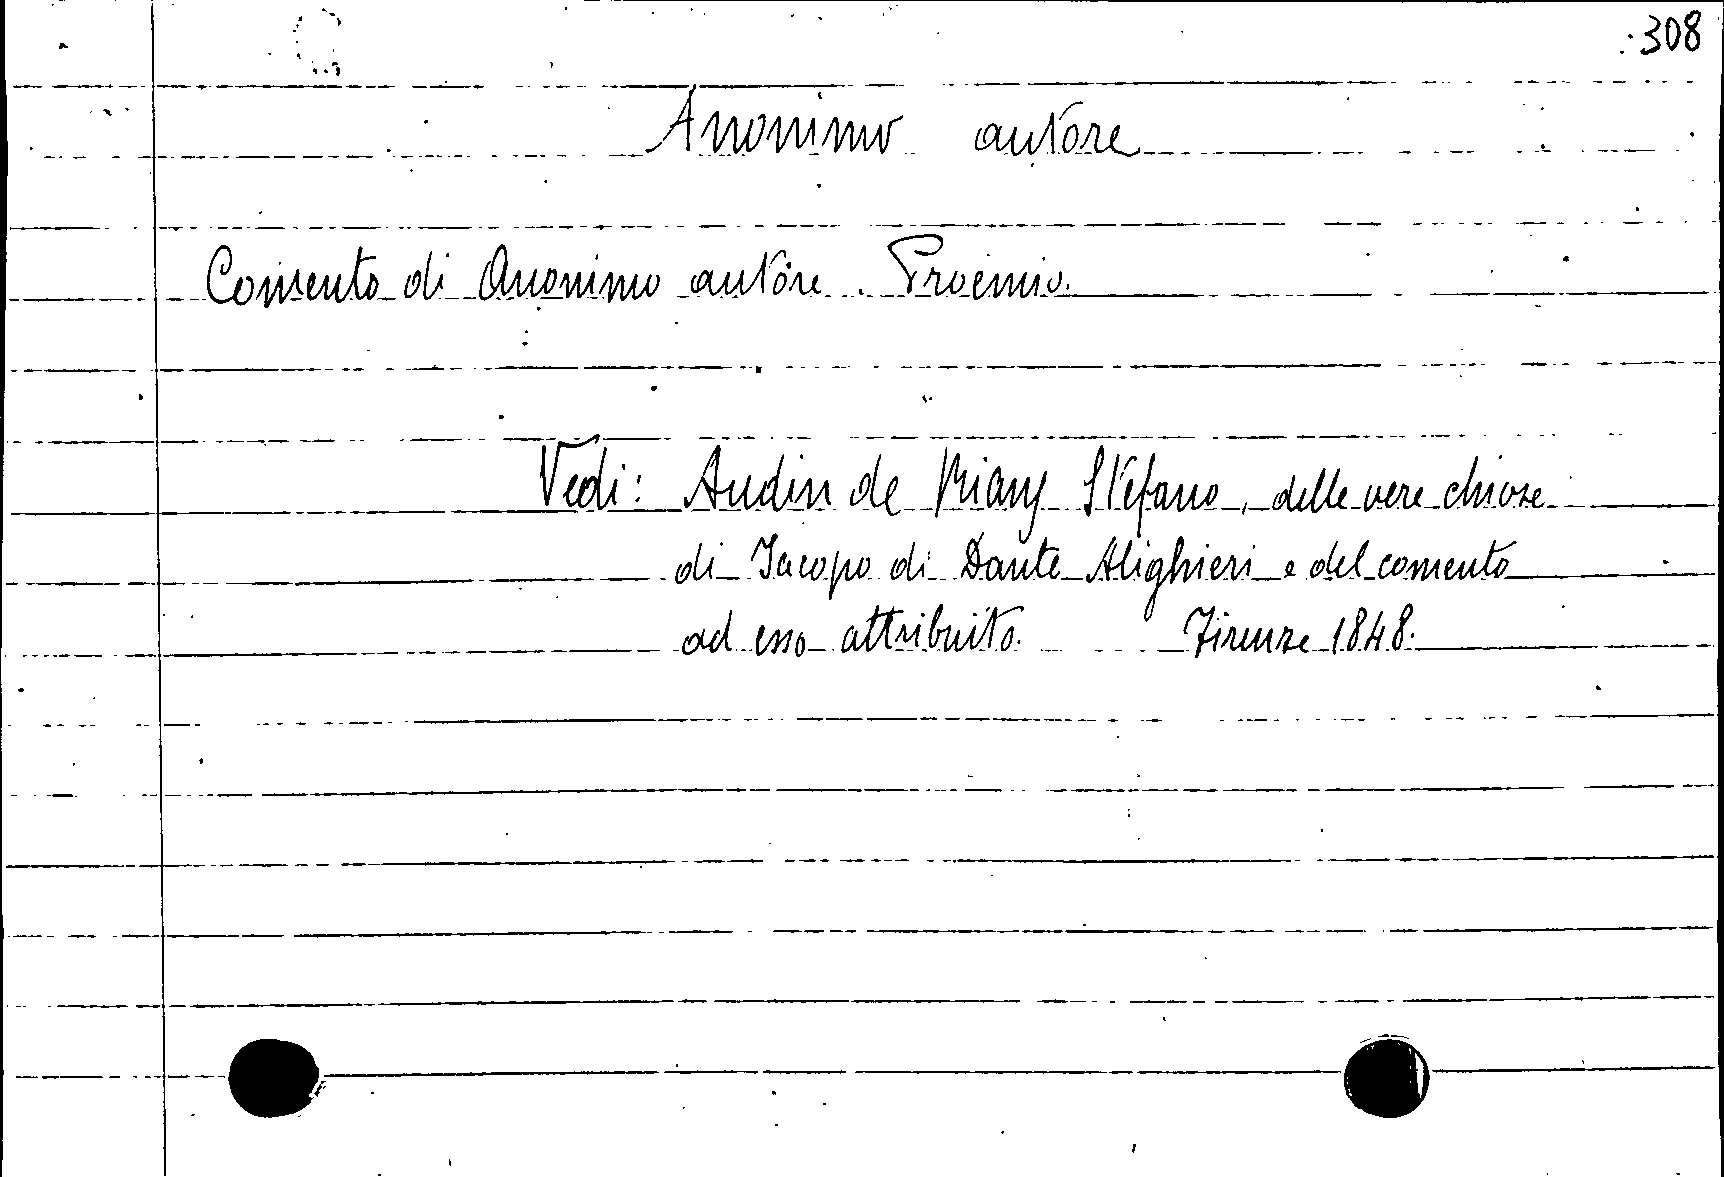 308
Anonimo autore
Comento di Anonimo autore. Proemio.
Vedi: Audin de Riany Stefano, delle vere chiose
di Jacopo di Dante Alighieri e del comento
ad esso attribuito. Firenze 1848.